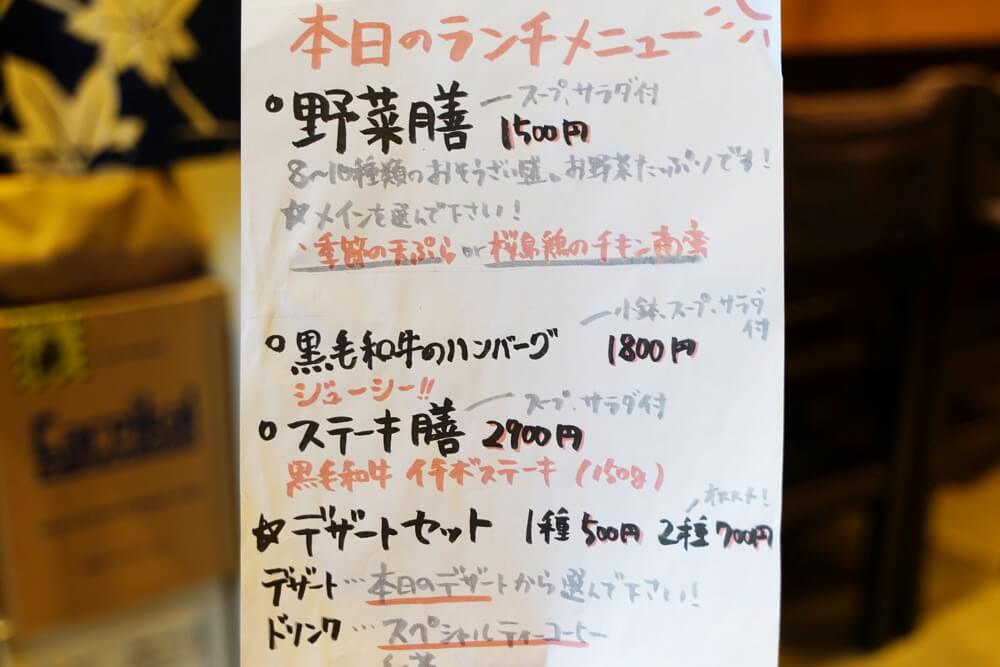 本日のランチメニュー
○野菜膳 スープ、サラダ付
1500円
8〜10種類のおそうざい盛。お野菜たっぷりです!
☆メインを選んで下さい!
・季節の天ぷら or 桜島鶏のチキン南蛮
小鉢、スープ、サラダ付
○黒毛和牛のハンバーグ 1800円
ジューシー!!
スープ、サラダ付
○ステーキ膳 2900円
黒毛和牛 イチボステーキ (150g)
オススメ!
☆デザートセット 1種500円 2種700円
デザート…本日のデザートから選んで下さい!
ドリンク…スペシャルティーコーヒー
紅茶